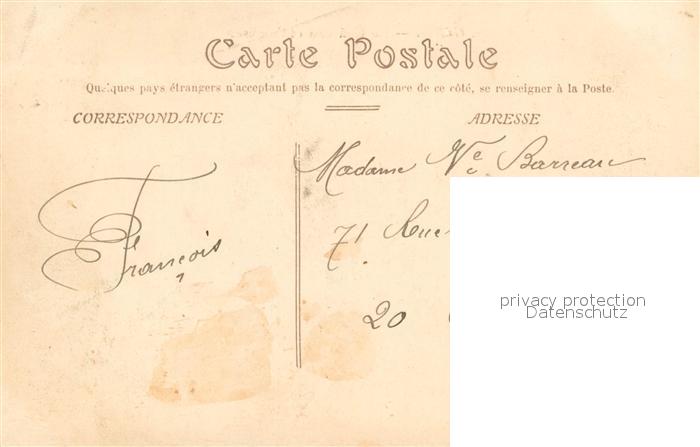 Carte Postale
Quelques pays étrangers n'acceptant pas la correspondance de ce côté, se renseigner à la Poste.
CORRESPONDANCE
ADRESSE
Madame Vve Barreau
71 Rue
François
20
privacy protection
Datenschutz